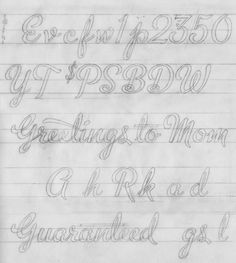 Evcfw1p2350
YT $PSBDW
Greetings to Mom
A h R k a d
Guaranteed gs l